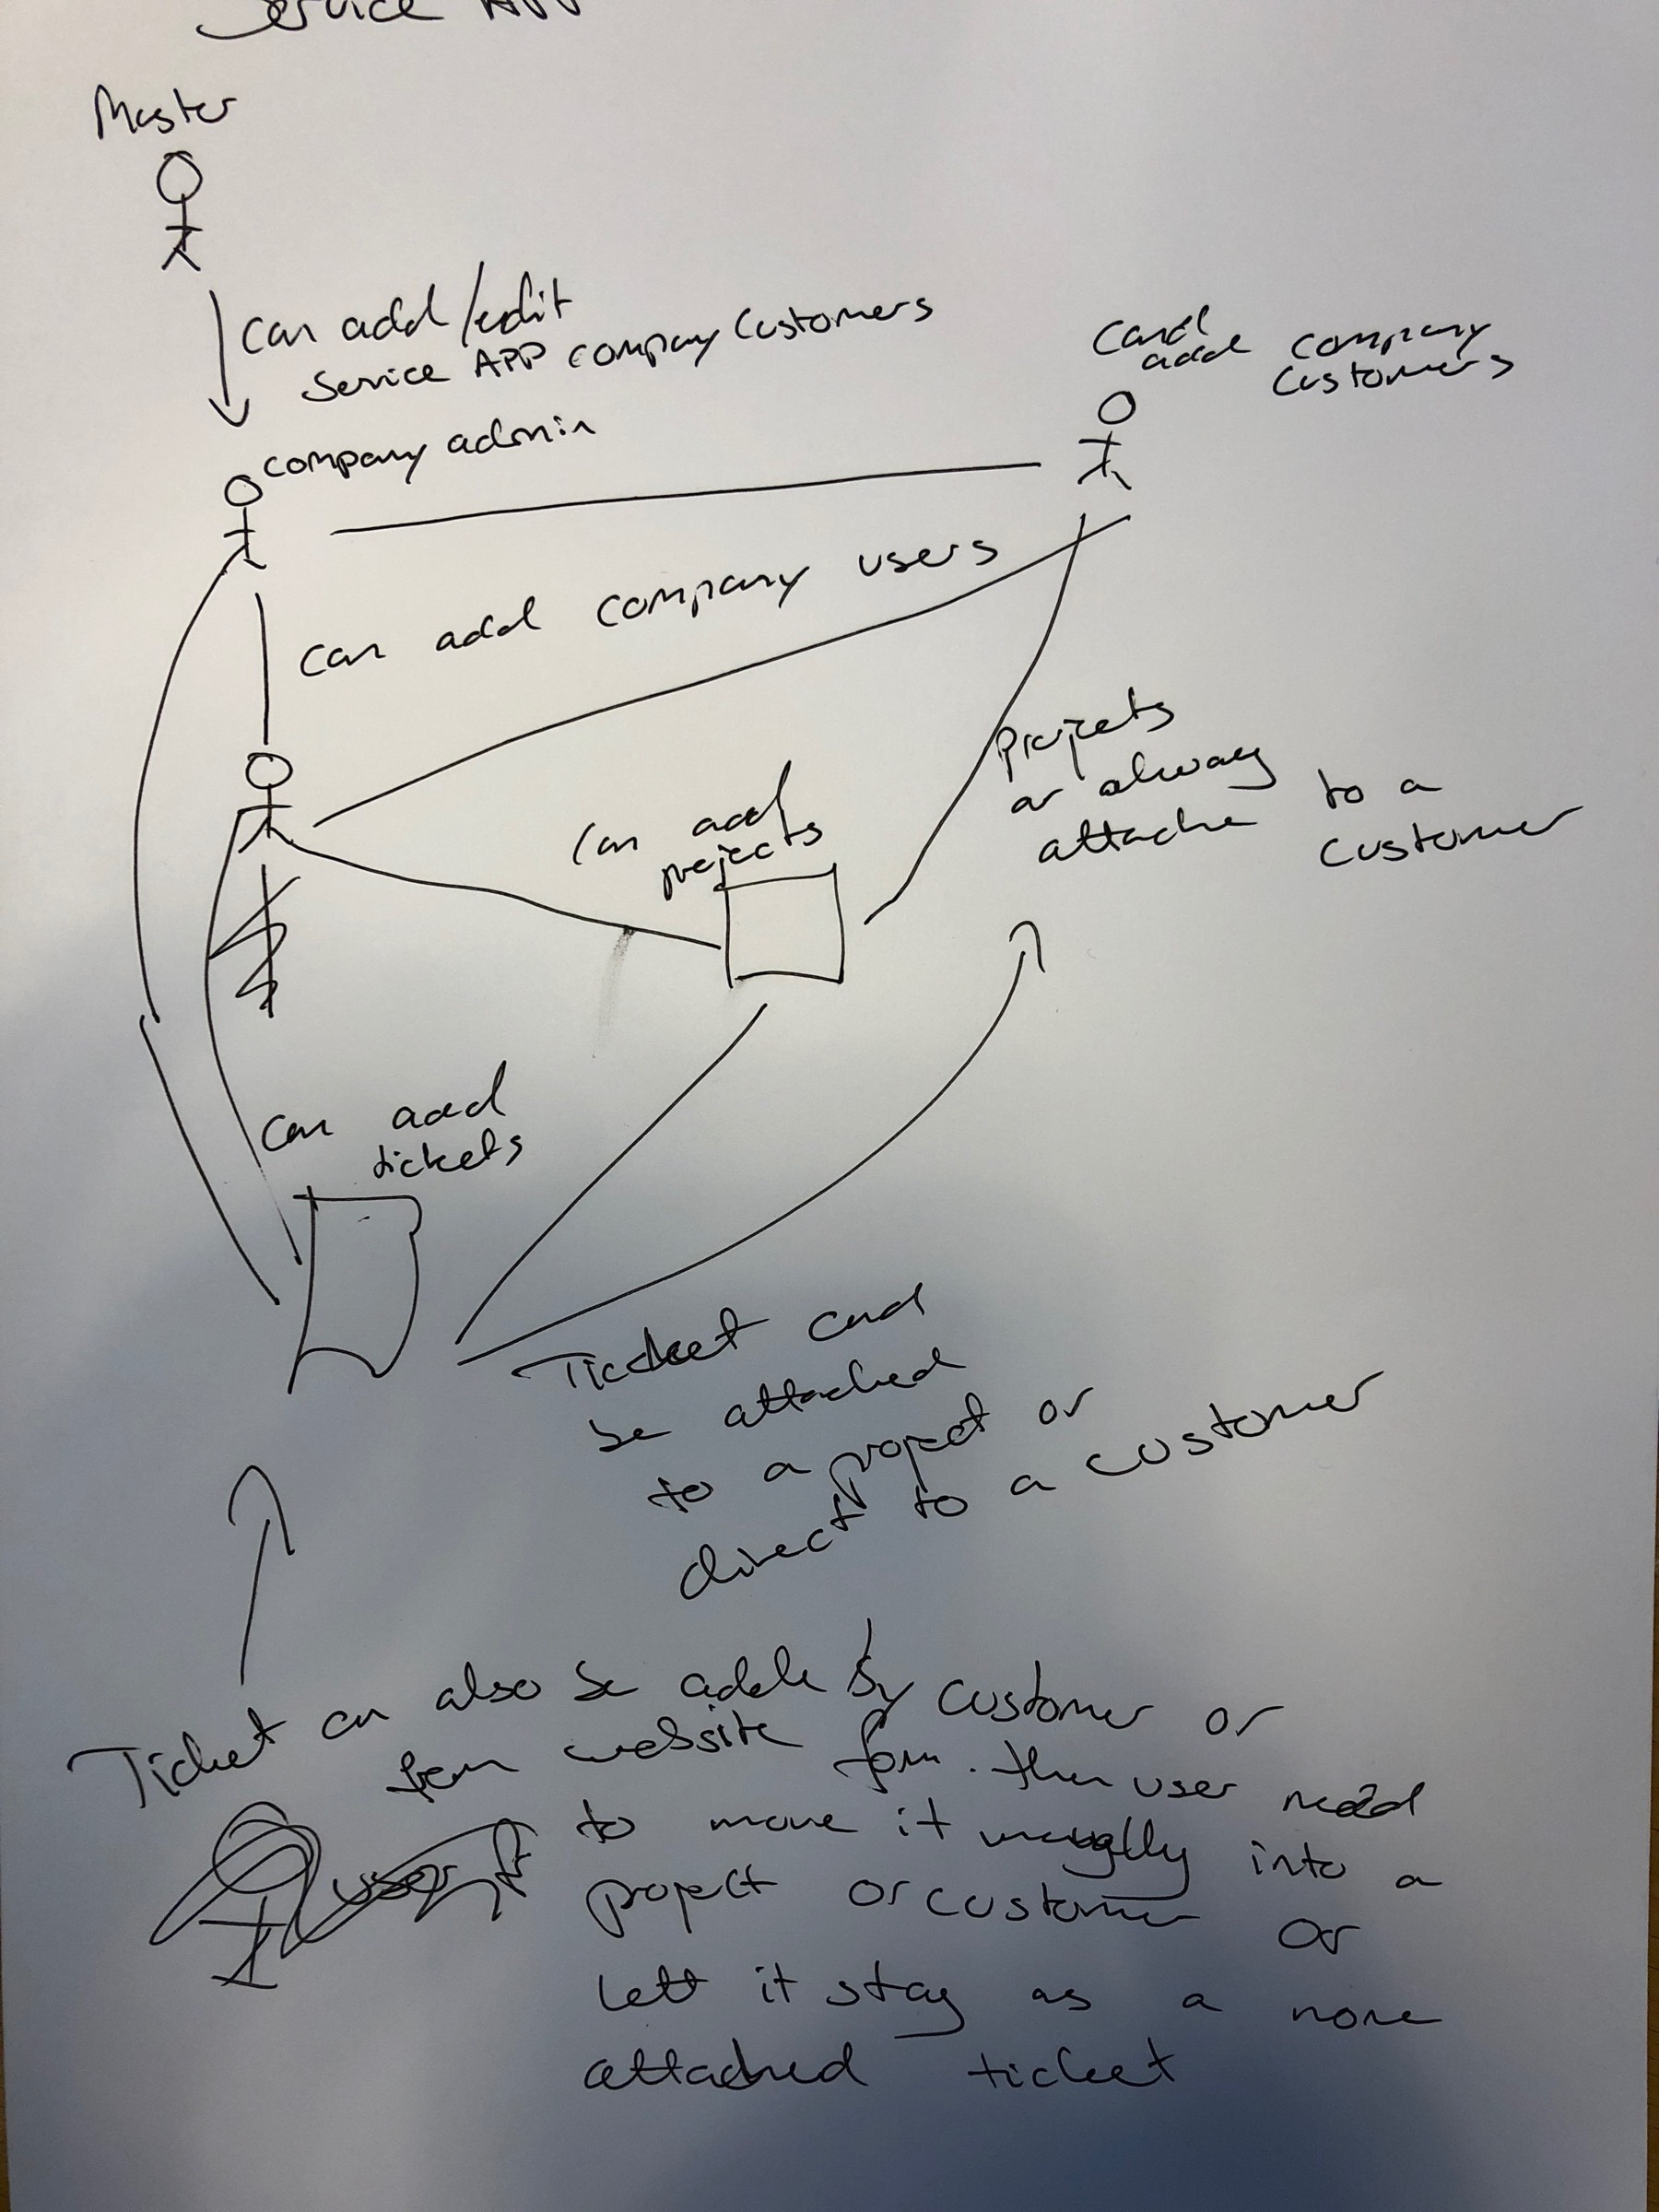 Service APP
Master
Can add/edit
Service APP company Customers
company admin
Cand
add company
customers
Can add company users
Can add
projects
Projects
ar alway
attache to a
customer
Can add
tickets
Ticket cand
be attached
to a project or
direct to a customer
Ticket can also be adde by customer or
from website form. then user need
to move it into a
project or customer or
lett it stay as a none
attached ticket
user